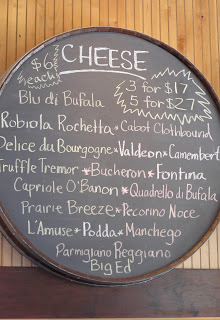 $6 each
CHEESE
3 for $17
5 for $27
Blu di Bufala
Robiola Rochetta * Cabot Clothbound
Delice du Bourgogne * Valdeon * Camembert
Truffle Tremor * Bucheron * Fontina
Capriole O'Banon * Quadrello di Bufala
Prairie Breeze * Pecorino Noce
L'Amuse * Podda * Manchego
Parmigiano Reggiano
Big Ed